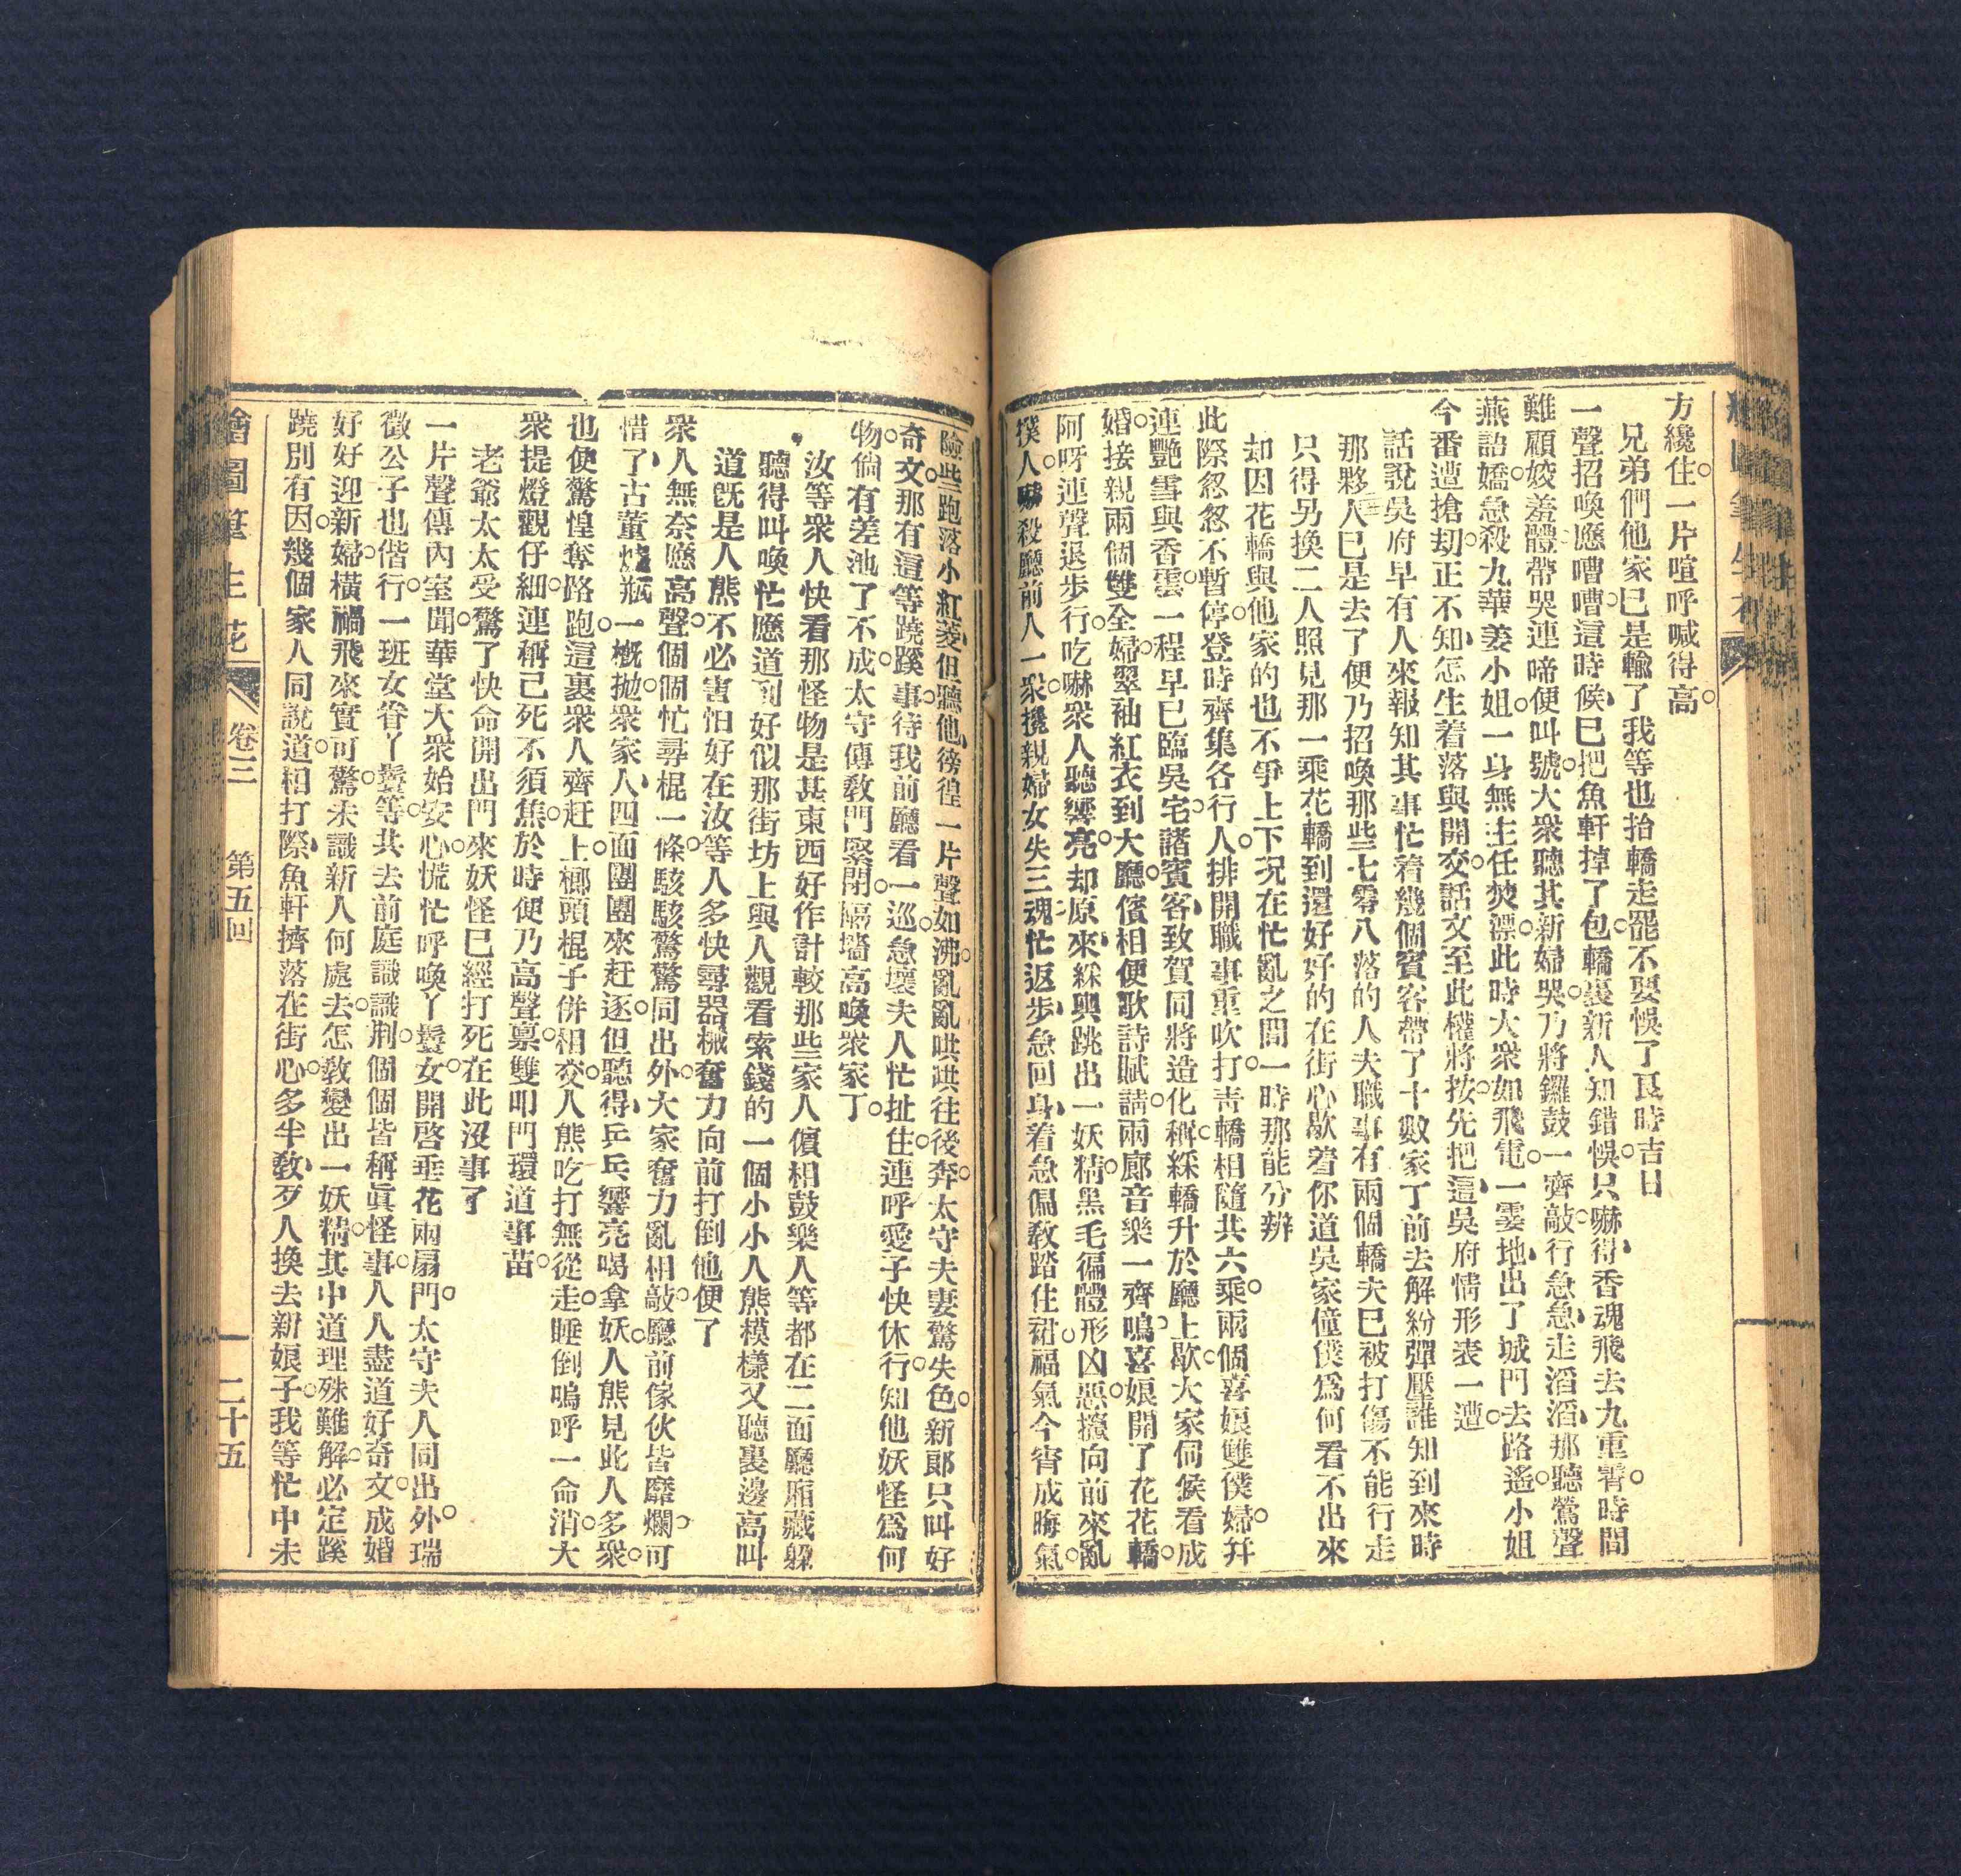 方纔住○一片喧呼喊得高○
兄弟們他家已是輸了我等也抬轎走罷不要悞了良時吉日
一聲招喚應嘈嘈○這時候已把魚軒掉了包○轎裏新人知錯悞○只嚇得香魂飛去九重霄○時間
難顧姣羞體帶哭連啼便叫號○大衆聽其新婦哭○乃將鑼鼓一齊敲○行急急走滔滔○那聽鶯聲
燕語嬌○急殺九華姜小姐○一身無主任焚漂○此時大衆如飛電○一霎地出了城門去路遙○小姐
今番遭搶刧○正不知怎生着落與開交○話文至此權將按○先把這吳府情形表一遭○
話說吳府早有人來報知其事忙着幾個賓客帶了十數家丁前去解紛彈壓誰知到來時
那夥人已是去了便乃招喚那些七零八落的人夫職事有兩個轎夫已被打傷不能行走
只得另換二人照見那一乘花轎到還好好的在街心歇着你道吳家僮僕爲何看不出來
却因花轎與他家的也不爭上下况在忙亂之間一時那能分辨
此際忽忽不暫停○登時齊集各行人○排開職事重吹打○靑轎相隨共六乘○兩個喜娘雙僕婦○幷
連艷雪與香雲○一程早已臨吳宅○諸賓客致賀同將造化稱○綵轎升於廳上歇○大家伺候看成
婚○接親兩個雙全婦○翠袖紅衣到大廳○儐相便歌詩賦請○兩廊音樂一齊鳴○喜娘開了花花轎○
阿呀連聲退步行○吃嚇衆人聽響亮○却原來綵輿跳出一妖精○黑毛徧體形凶惡○攛向前來亂
撲人○嚇殺廳前人一衆○攙親婦女失三魂○忙返步急回身○着急偏敎踏住裙○福氣今宵成晦氣○
險些跑落小紅菱○但聽他徬徨一片聲如沸○亂亂哄哄往後奔○太守夫妻驚失色○新郞只叫好
奇文○那有這等蹺蹊事○待我前廳看一巡○急壞夫人忙扯住○連呼愛子快休行○知他妖怪爲何
物○倘有差池了不成○太守傳敎門緊閉○隔墻高喚衆家丁○
汝等衆人快看那怪物是甚東西好作計較那些家人儐相鼓樂人等都在二面廳廂藏躱
聽得叫喚忙應道到好似那街坊上與人觀看索錢的一個小小人熊模樣又聽裏邊高叫
道旣是人熊不必害怕好在汝等人多快尋器械奮力向前打倒他便了
衆人無奈應高聲○個個忙尋棍一條○駭駭驚驚同出外○大家奮力亂相敲○廳前傢伙皆靡爛○可
惜了古董燒瓶一概抛○衆家人四面團團來赶逐○但聽得乒乓響亮喝拿妖○人熊見此人多衆○
也便驚惶奪路跑○這裏衆人齊赶上○榔頭棍子併相交○人熊吃打無從走○睡倒嗚呼一命消○大
衆提燈觀仔細○連稱已死不須焦○於時便乃高聲禀○雙叩門環道事苗○
老爺太太受驚了快命開出門來妖怪已經打死在此沒事了
一片聲傳內室聞○華堂大衆始安心○慌忙呼喚丫鬟女○開啓垂花兩扇門○太守夫人同出外○瑞
徵公子也偕行○一班女眷丫鬟等○共去前庭識識荆○個個皆稱眞怪事○人人盡道好奇文○成婚
好好迎新婦○橫禍飛來實可驚○未識新人何處去○怎敎變出一妖精○其中道理殊難解○必定蹊
蹺別有因○幾個家人同說道○相打際魚軒擠落在街心○多半敎歹人換去新娘子○我等忙中未
繪圖筆生花 卷三 第五回 二十五